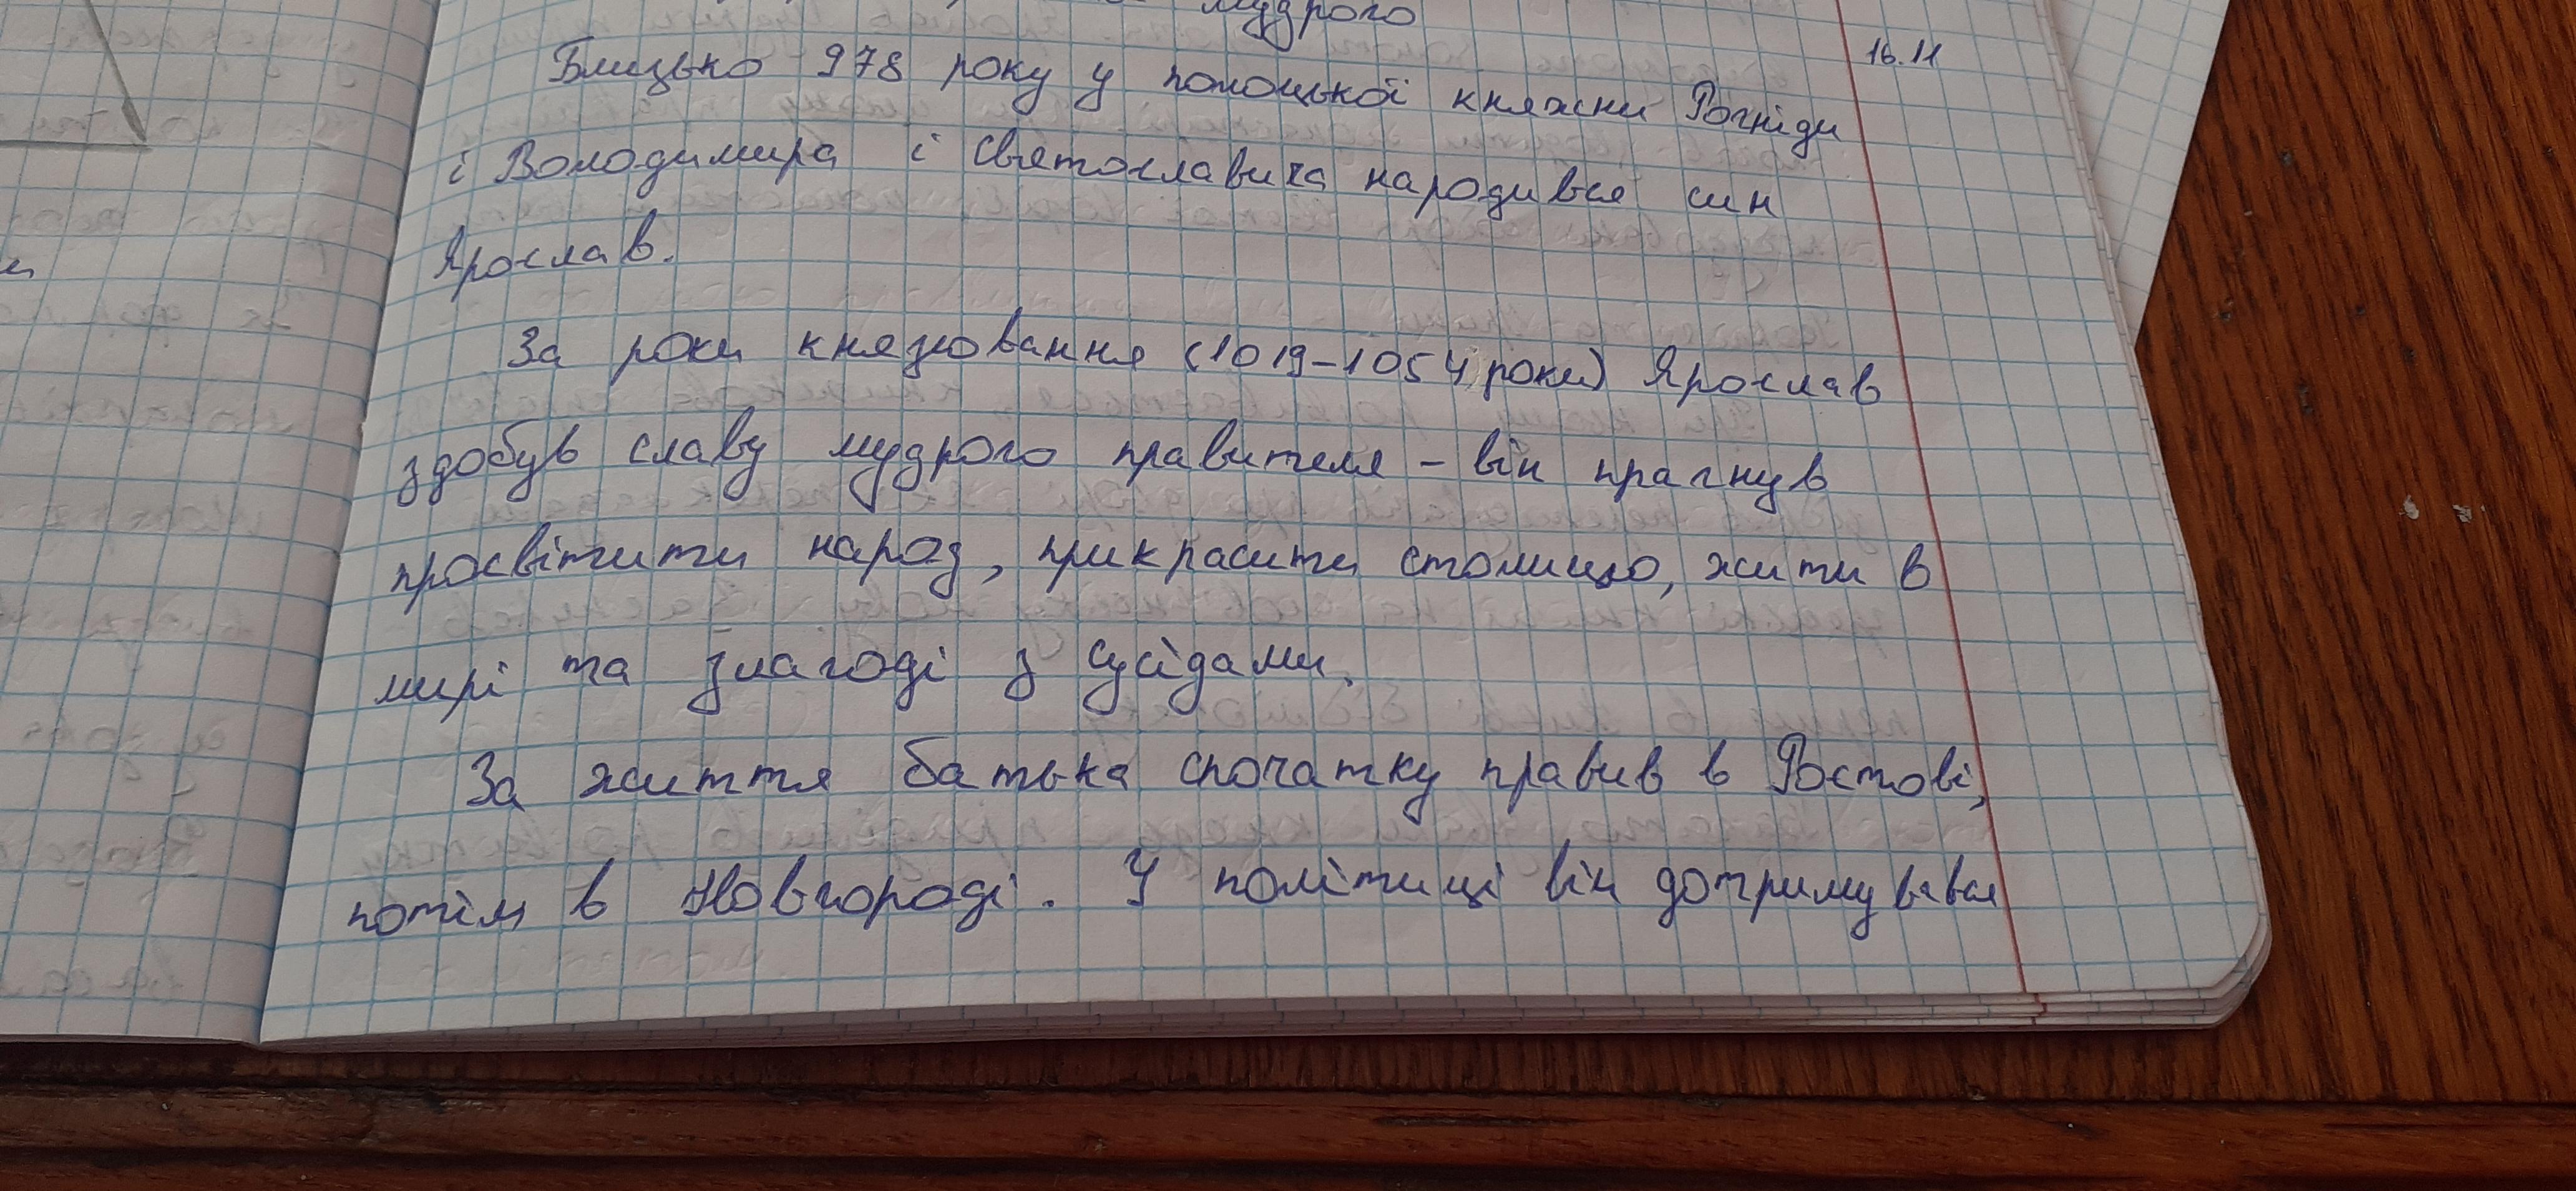 мудрого
16.11
Близько 978 року у полоцької княжни Рогніди
і Володимира і Святославича народився син
Ярослав.
За роки князювання (1019-1054 роки) Ярослав
здобув славу мудрого правителя - він прагнув
просвітити народ, прикрасити столицю, жити в
мирі та злагоді з сусідами.
За життя батька спочатку правив в Ростові,
потім в Новгороді. У політиці він дотримувався